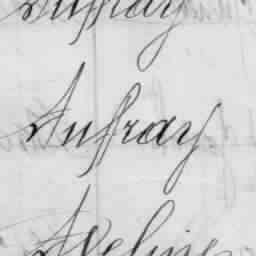 Duffray
Duffray
Aveline